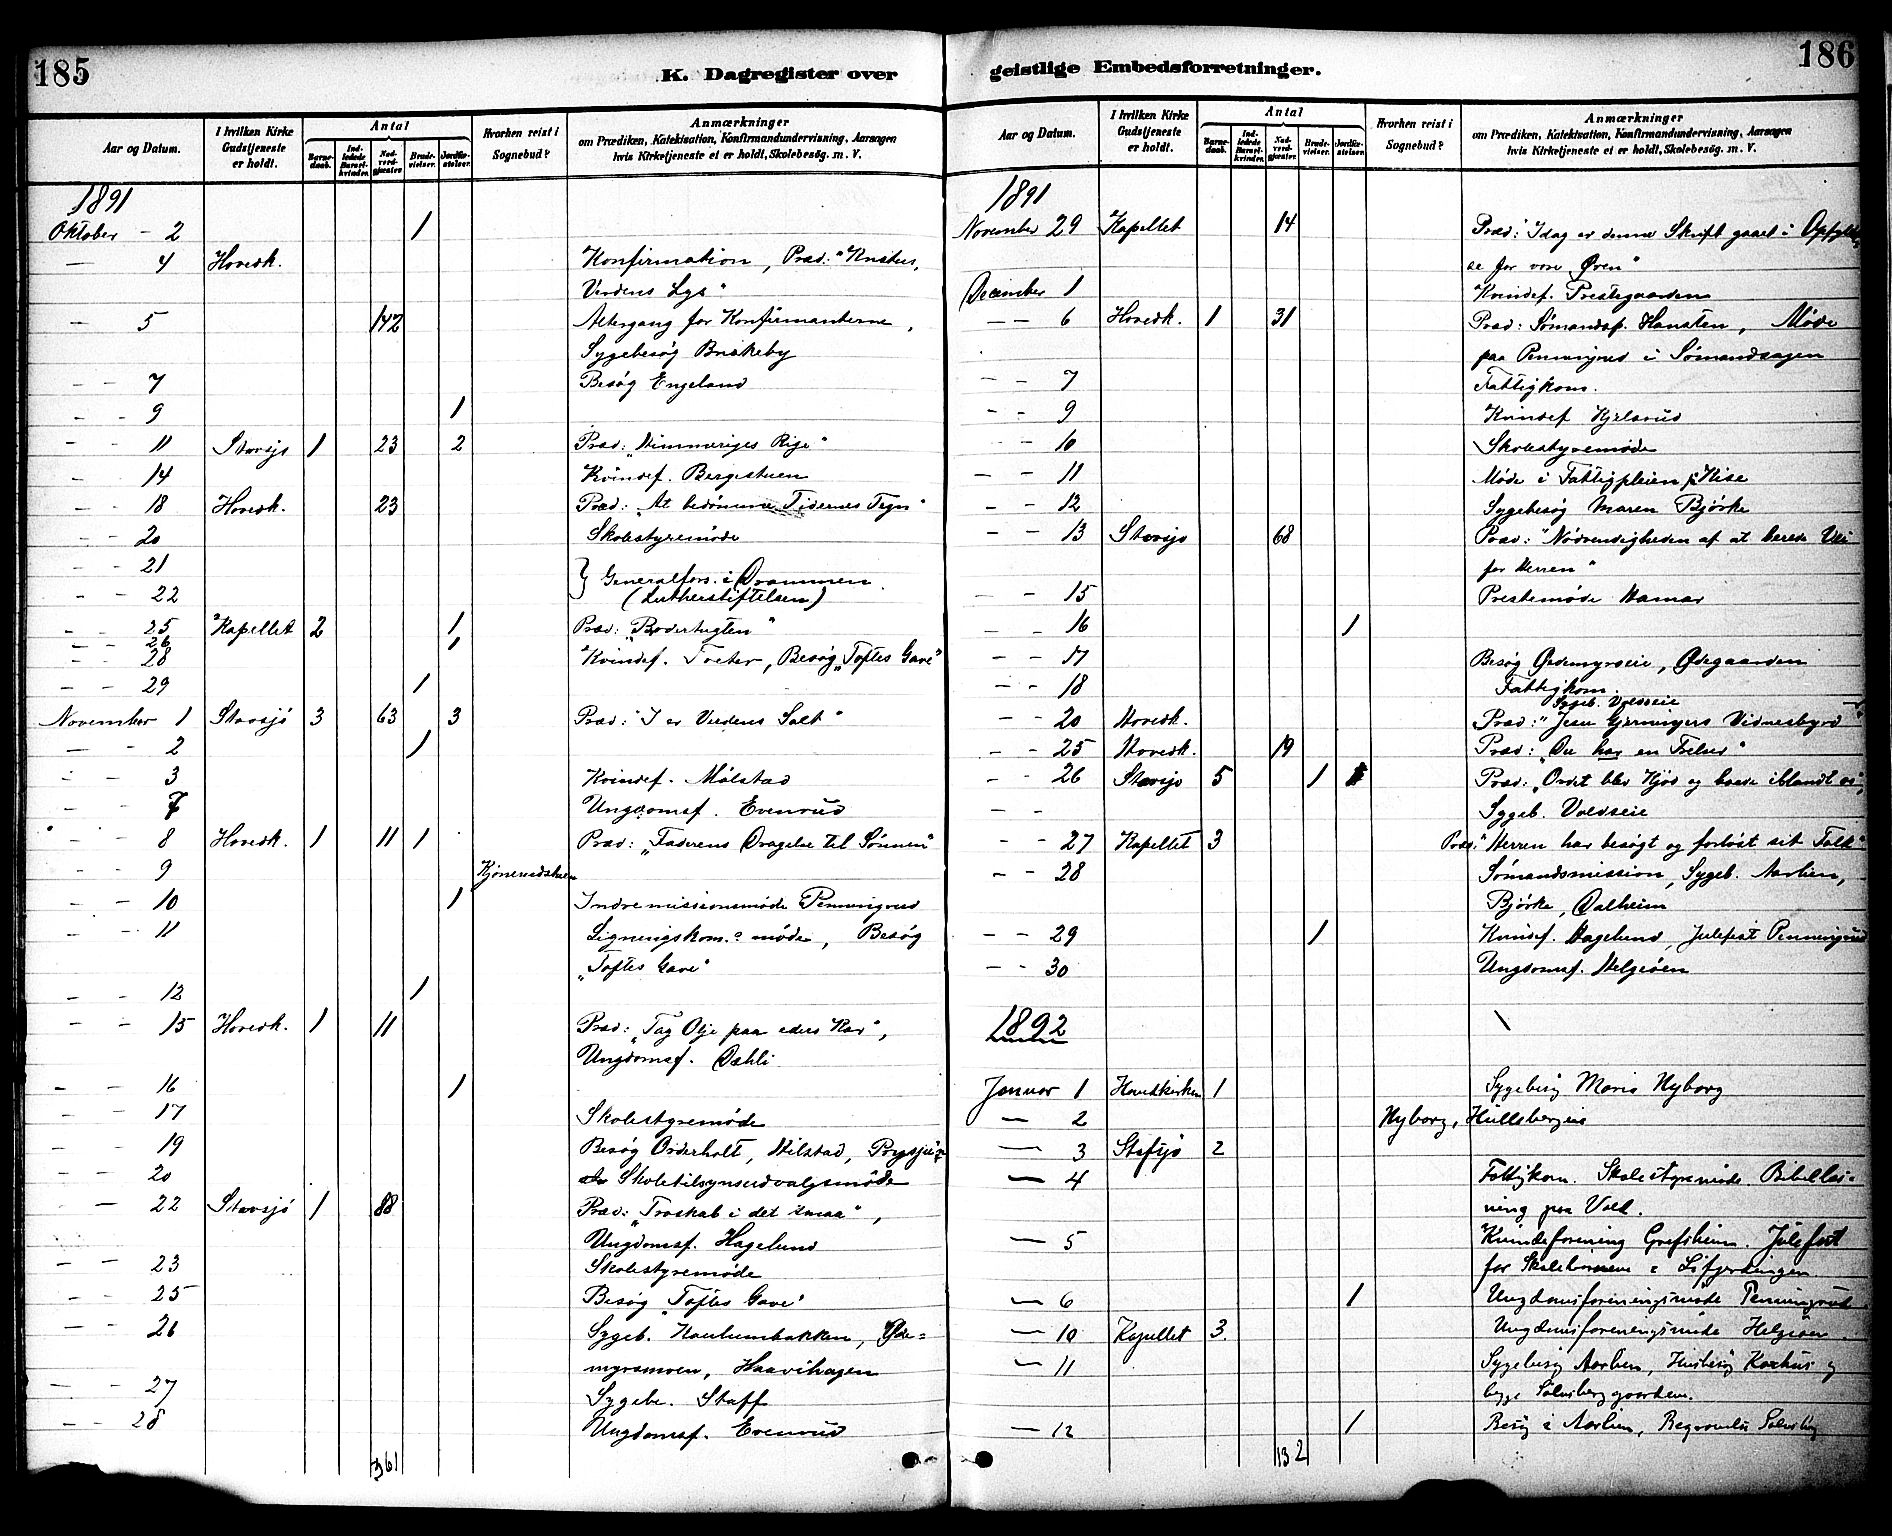 185
K. Dagregister over
Aar og Datum.
I hvilken Kirke Gudstjeneste er holdt.
Antal
Barnedaab.
Indledede Barselkvinder.
Nadverdgjæster.
Brudevielser.
Jordfæstelser.
Hvorhen reist i Sognebud?
Anmærkninger
om Prædiken, Katekisation, Konfirmandundervisning, Aarsagen
hvis Kirketjeneste ei er holdt, Skolebesøg. m. V.
1891
Oktober - 2 1
— 4 Hovedk. Konfirmation, Præd: "Kristus,
Verdens Lys"
- 5 142 Altergang for Konfirmanterne,
Sygebesøg Brakeby
- - 7 Besøg Engeland
- - 9 1
- - 11 Stavsjø 1 23 2 Præd: "Himmeriges Rige"
- 14 Kvindef. Bergestuen
- - 18 Hovedk. 23 Præd: "At bedømme Tidernes Tegn"
- - 20 Skolestyremøde
- - 21 } Generalfors. i Drammen
- - 22 (Lutherstiftelsen)
- - 25 Kapellet 2 1 Præd: "Brodertugten"
- - 26 1
- - 28 Kvindef. Freter, Besøg "Toftes Gave"
- - 29 1
November 1 Stavsjø 3 63 3 Præd: "I er Verdens Salt"
- - 2 1
- - 3 Kvindef. Mølstad
- - 7 Ungdomsf. Evenrud
- - 8 Hovedk. 1 11 1 Præd: "Faderens Dragelse til Sønnen"
- - 9
- - 10 1 Indremissionsmøde Penningrud
- - 11 Ligningskom. møde, Besøg
"Toftes Gave"
- - 12 1
- - 15 Hovedk. 1 11 Præd: "Tag Olje paa eders Kar",
Ungdomsf. Dæhli
- - 16 1
- - 17 Skolestyremøde
- - 19 Besøg Orderholt, Hilstad,
- - 20 Skoletilsynsudvalgsmøde
- 22 Stavsjø 1 88 Præd: "Troskab i det smaa",
Ungdomsf. Hagelund
- - 23 Skolestyremøde
- - 25 Besøg "Toftes Gave"
- - 26 Sygeb. Øde-
myrsmoen, Haavihagen
- - 27 Sygebe. Staff
- - 28 Ungdomsf. Evenrud
361
186
geistlige Embedsforretninger.
Aar og Datum.
I hvilken Kirke Gudstjeneste er holdt.
Antal
Barnedaab.
Indledede Barselkvinder.
Nadverdgjæster.
Brudevielser.
Jordfæstelser.
Hvorhen reist i Sognebud?
Anmærkninger
om Prædiken, Katekisation, Konfirmandundervisning, Aarsagen
hvis Kirketjeneste ei er holdt, Skolebesøg. m. V.
1891
November 29 Kapellet 14 Præd: "Idag er denne Skrift gaaet i Opfyldel
se for vore Øren"
December 1 Kvindef. Prestegaarden
- - 6 Hovedk. 1 31 Præd: Sømandsp. Hansten, Møde
paa Penningrud i Sømandssagen
- - 7 Fattigkom.
- - 9 Kvindef Kjelsrud
- - 10 Skolestyremøde
- - 11 Møde i Fattigpleien p. Kise
- - 12 Sygebesøg Maren Bjørke
- - 13 Stavsjø 68 Præd: "Nødvendigheden af at berede Vei
for Herren"
- - 15 Prestemøde Hamar
- - 16 1
- - 17 Besøg Ødemyrseie, Ødegaarden
- - 18 Fattigkom.
Sygeb. Voldseie
- - 20 Hovedk. Præd: "Jesu Gjerningers Vidnesbyrd"
- - 25 Hovedk. 19 Præd: "Du har en Frelser"
- - 26 Stavsjø 5 1 Præd: "Ordet blev Kjød og boede iblandt os",
- - Sygeb. Voldseie
- - 27 Kapellet 3 Præd: "Herren har besøgt og forløst sit Folk"
- - 28 Sømandsmission, Sygeb. Aarlien,
Bjørke, Dalheim
- - 29 1 Kvindef. Hagelund, Julefest Penningrud
- - 30 Ungdomsf. Helgøen
1892
Januar 1 Hovedkirken 1 Sygebesøg Maria Nyborg
— 2 Nyborg, Hullebergeie
— 3 Stafsjø 2
— 4 Fattigkom. Skolestyremøde Bibellæs-
ning paa Vold.
— 5 Kvindeforening Grefsheim. Julefest
for Skolebørnene i
— 6 1 Ungdomsforeningsmøde Penningrud
— 10 Kapellet 3. Ungdomsforeningsmøde Helgøen.
— 11 Sygebesøg Aarlien, Husbesøg og
begge Sølvsberggaardene.
— 12 1 Besøg i Aarlien, Begravelse
132